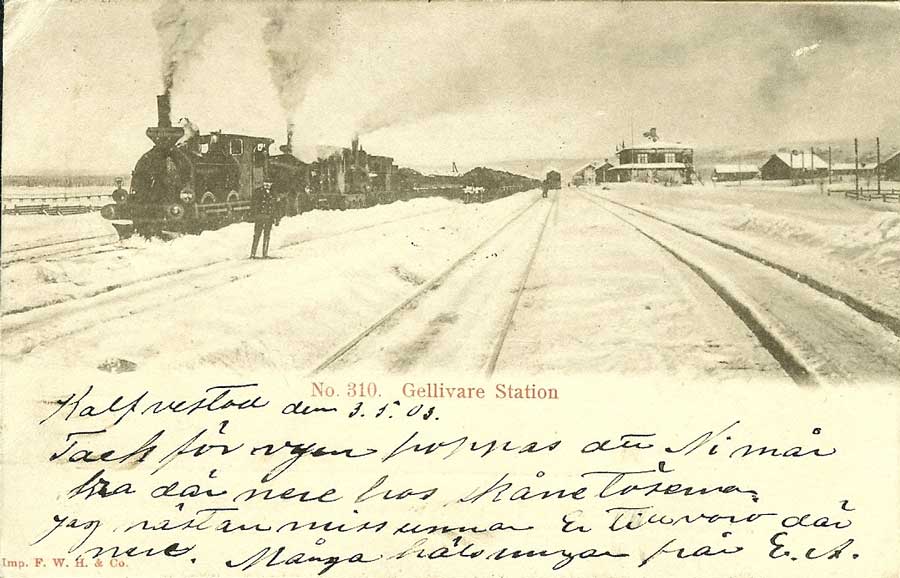 No. 310. Gellivare Station
Kalfvestad den 3.5.03.
Tack för vyen hoppas att Ni mår
bra där nere hos skåne Töserna
jag nästan missunnar Er Tillvaro där
nere. Många hälsningar från E. A.
Imp. F. W. H. & Co.